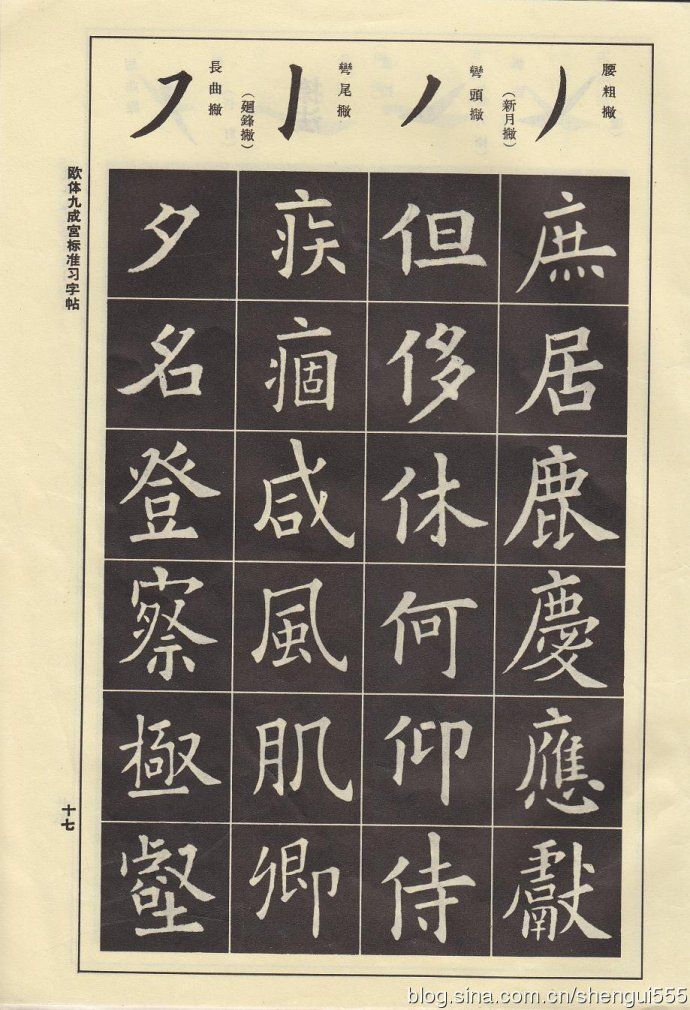 腰粗撇
（新月撇）
彎頭撇
彎尾撇
（廻鋒撇）
長曲撇
庶居鹿慶應獻
但侈休何仰侍
疾痼咸風肌卿
夕名登察極壑
欧体九成宫标准习字帖
十七
blog.sina.com.cn/shengui555